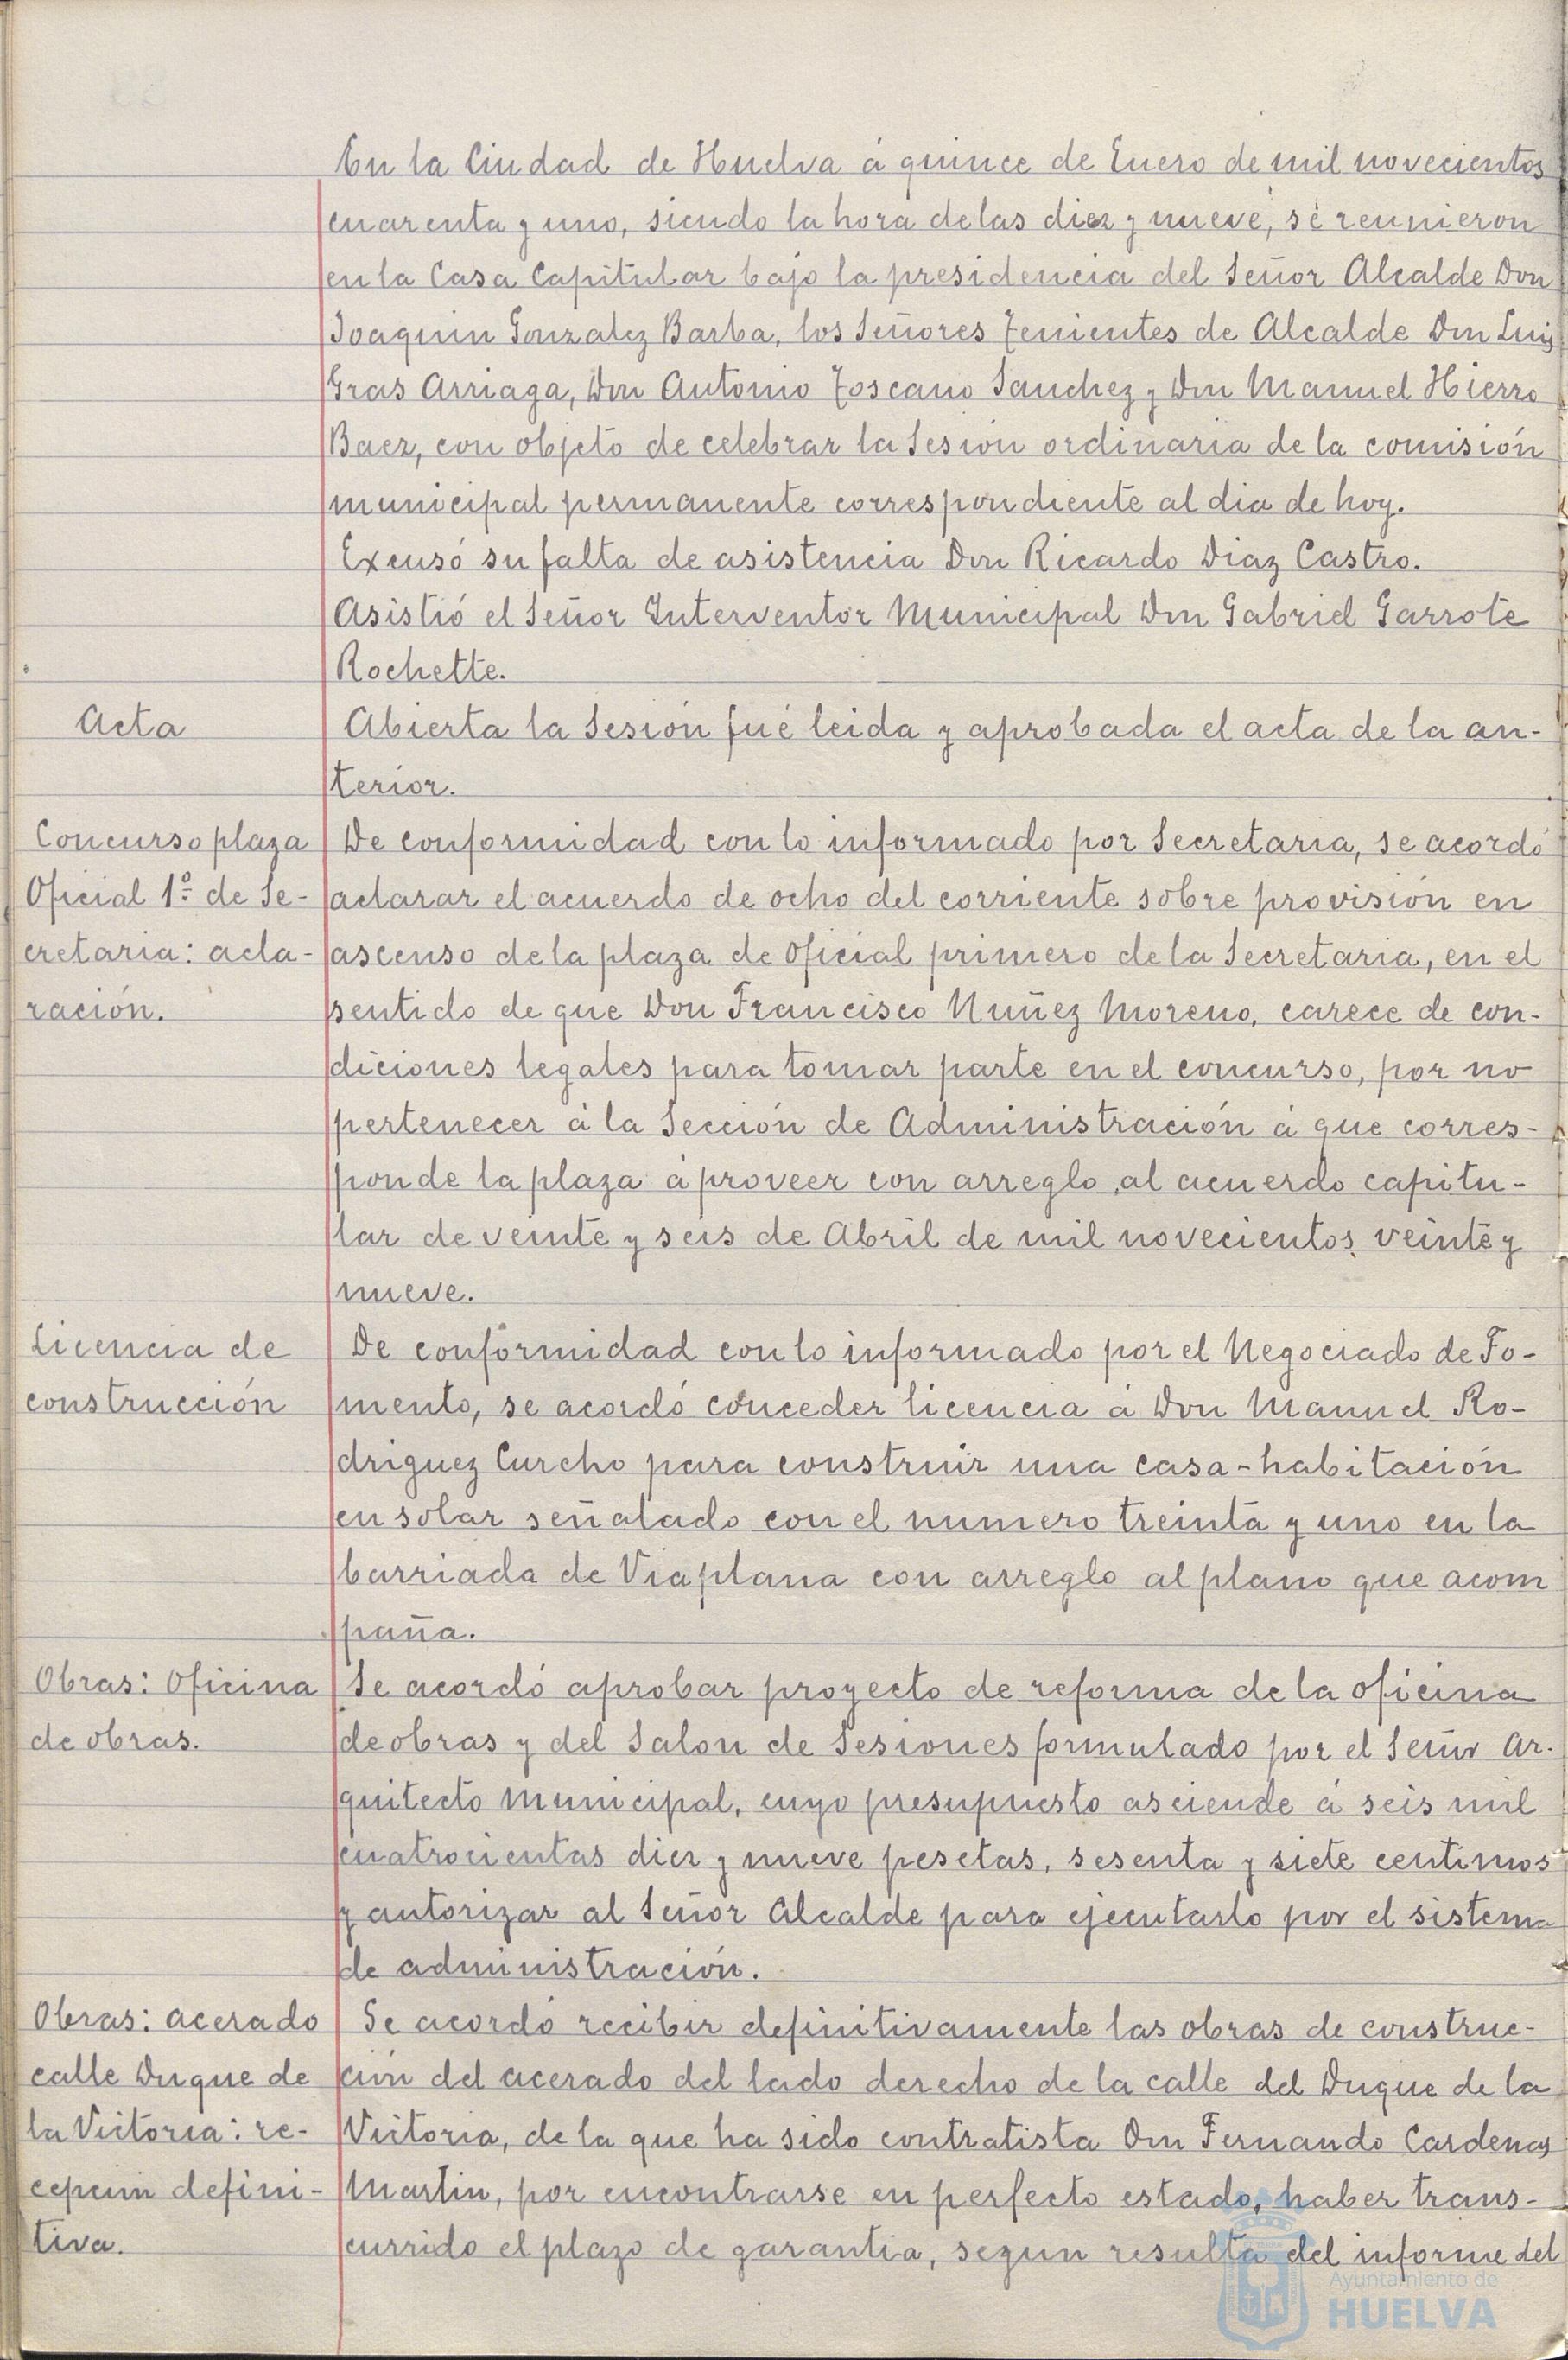 En la Ciudad de Huelva á quince de Enero de mil novecientos
cuarenta y uno, siendo la hora de las diez y nueve, se reunieron
en la Casa Capitular bajo la presidencia del Señor Alcalde Don
Joaquin Gonzalez Barba, los Señores Tenientes de Alcalde Don Luis
Gras Arriaga, Don Antonio Toscano Sanchez y Don Manuel Hierro
Baez, con objeto de celebrar la Sesión ordinaria de la comisión
municipal permanente correspondiente al dia de hoy.
Excusó su falta de asistencia Don Ricardo Diaz Castro.
Asistió el Señor Interventor Municipal Don Gabriel Garrote
Rochette.
Acta
Abierta la Sesión fué leida y aprobada el acta de la an-
terior.
Concurso plaza
Oficial 1º de Se-
cretaria: acla-
ración.
De conformidad con lo informado por Secretaria, se acordó
aclarar el acuerdo de ocho del corriente sobre provisión en
ascenso de la plaza de oficial primero de la Secretaria, en el
sentido de que Don Francisco Nuñez Moreno, carece de con-
diciones legales para tomar parte en el concurso, por no
pertenecer á la Sección de Administración á que corres-
ponde la plaza á proveer con arreglo al acuerdo capitu-
lar de veinte y seis de Abril de mil novecientos veinte y
nueve.
Licencia de
construcción
De conformidad con lo informado por el Negociado de Fo-
mento, se acordó conceder licencia á Don Manuel Ro-
driguez Curcho para construir una casa-habitación
en solar señalado con el numero treinta y uno en la
barriada de Viaplana con arreglo al plano que acom
paña.
Obras: Oficina
de obras.
Se acordó aprobar proyecto de reforma de la oficina
de obras y del Salon de Sesiones formulado por el Señor Ar-
quitecto Municipal, cuyo presupuesto asciende á seis mil
cuatrocientas diez y nueve pesetas, sesenta y siete centimos
y autorizar al Señor Alcalde para ejecutarlo por el sistema
de administración.
Obras: acerado
calle Duque de
la Victoria: re-
cepción defini-
tiva.
Se acordó recibir definitivamente las obras de construc-
ción del acerado del lado derecho de la calle del Duque de la
Victoria, de la que ha sido contratista Don Fernando Cardenas
Martin, por encontrarse en perfecto estado, haber trans-
currido el plazo de garantia, segun resulta del informe del
Ayuntamiento de
HUELVA